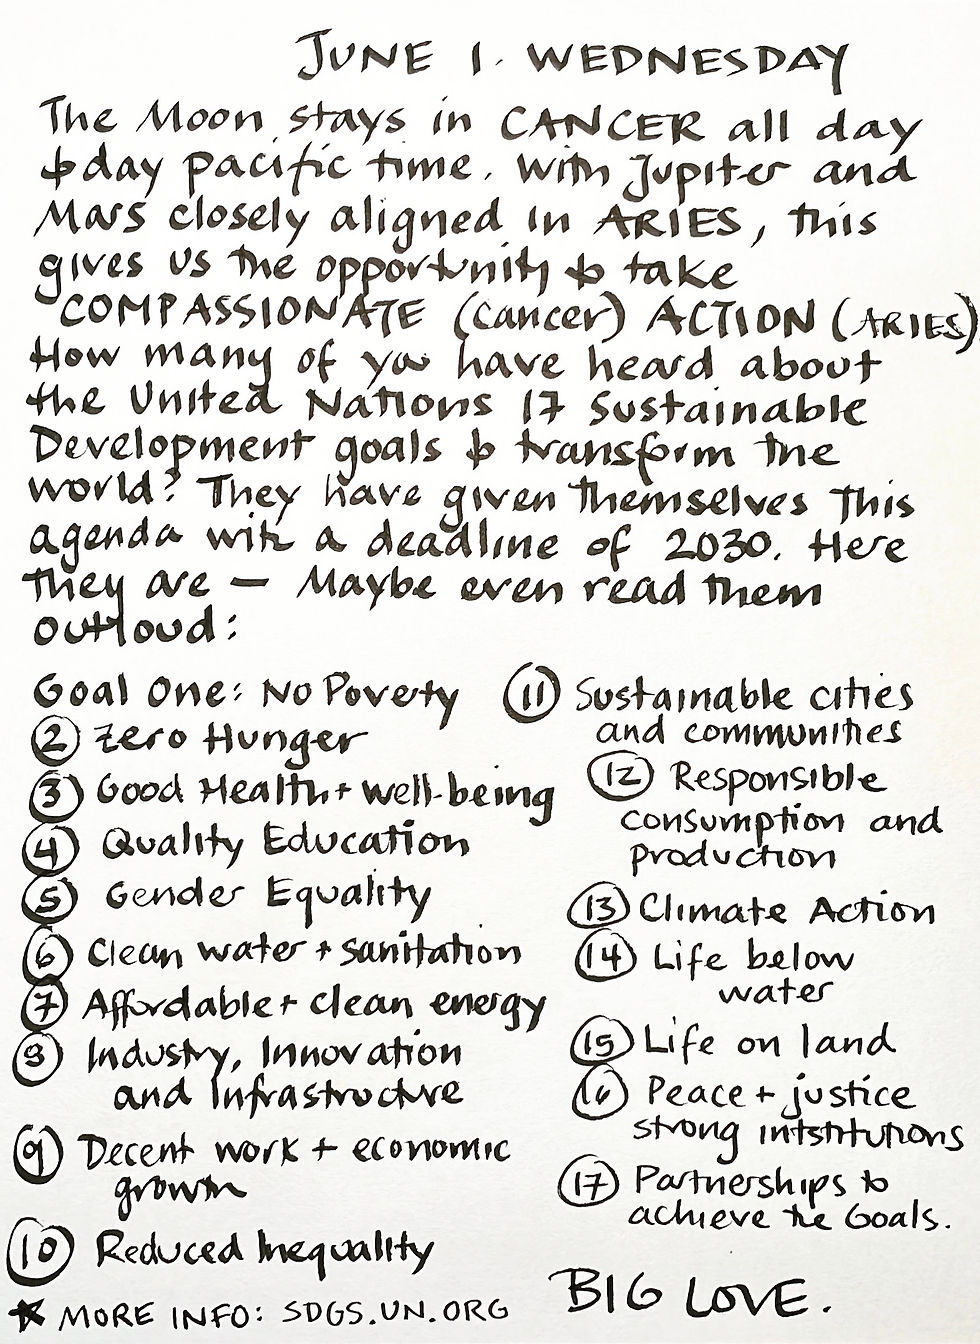 JUNE 1. WEDNESDAY
The Moon stays in CANCER all day
today pacific time. With Jupiter and
Mars closely aligned in ARIES, this
gives us the opportunity to take
COMPASSIONATE (cancer) ACTION (ARIES)
How many of you have heard about
the United Nations 17 Sustainable
Development goals to transform the
world? They have given themselves this
agenda with a deadline of 2030. Here
they are — Maybe even read them
outloud:
Goal One: No Poverty
2 Zero Hunger
3 Good Health + well-being
4 Quality Education
5 Gender Equality
6 Clean water + sanitation
7 Affordable + clean energy
8 Industry, Innovation
and Infrastructure
9 Decent work + economic
growth
10 Reduced Inequality
★ MORE INFO: SDGS.UN.ORG
11 Sustainable cities
and communities
12 Responsible
consumption and
production
13 Climate Action
14 Life below
water
15 Life on land
16 Peace + justice
strong intstitutions
17 Partnerships to
achieve the Goals.
BIG LOVE.